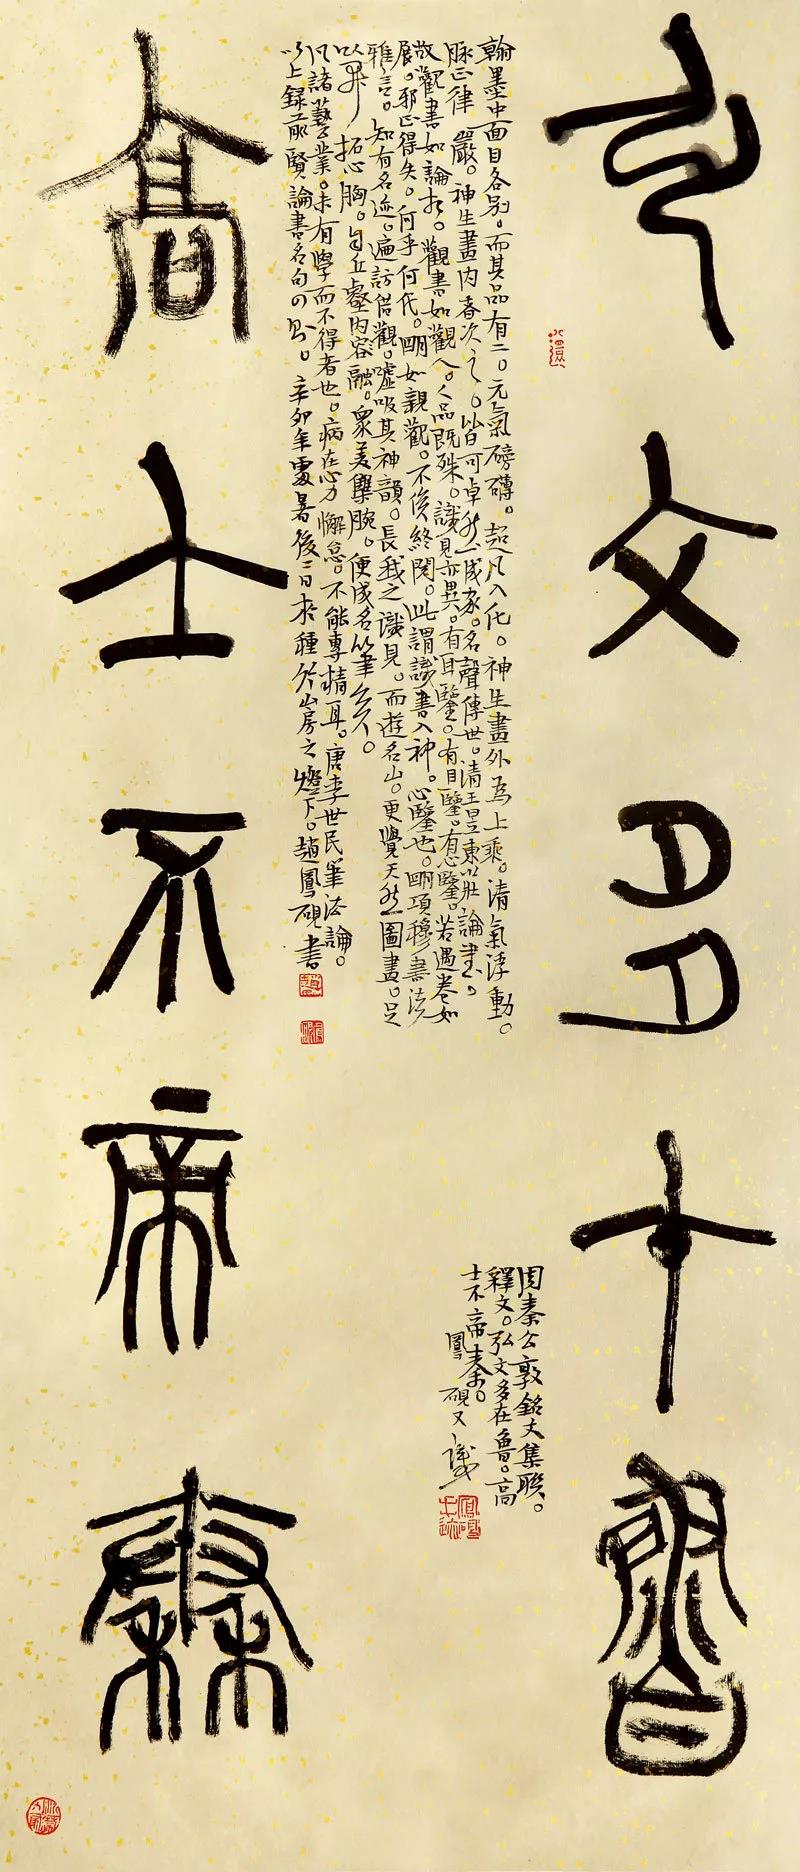 弘文多在魯
翰墨中面目各别。而其品有二。元氣磅礴。超凡入化。神生畫外為上乘。清氣浮動。
脉正律嚴。神生畫内者次之。皆可卓然成家。名聲傳世。清王昱東莊論畫。
故觀書如論相。觀書如觀人。人品既殊。識見亦異。有耳鑒。有目鑒。有心鑒。若遇卷初
展。邪正得失。何手何代。明如親觀。不俟終閱。此謂識書入神。心鑒也。明項穆書法
雅言。知有名迹。遍訪借觀。噓吸其神韻。長我之識見。而遊名山。更覺天然圖畫。足
以開拓心胸。自丘壑内容融。衆美集腕。便成名筆矣。
凡諸藝業。未有學而不得者也。病在心力懈怠。不能專精耳。唐李世民筆法論。
以上録前賢論書名句四则。辛卯年處暑後二日於種竹山房之燈下。趙鳳硯書
周秦公敦銘文集聯。
釋文。弘文多在魯。高
士不帝秦。
鳳硯又識
高士不帝秦